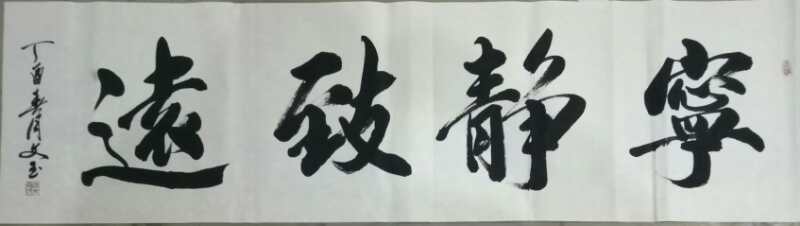 寧静致遠
丁酉春月文玉